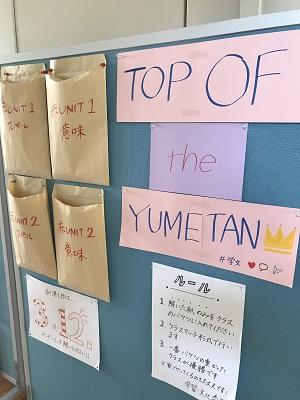 TOP OF
the
YUMETAN
#学女
赤UNIT 1
スペル
赤UNIT 1
意味
赤UNIT 2
スペル
赤UNIT 2
意味
3月12日
ルール
1. 解いた紙のみをクラス
のバケツに入れてください
2. クラスマッチ形式で行い
ます
3. 一番バケツの重かった
クラスが優勝です